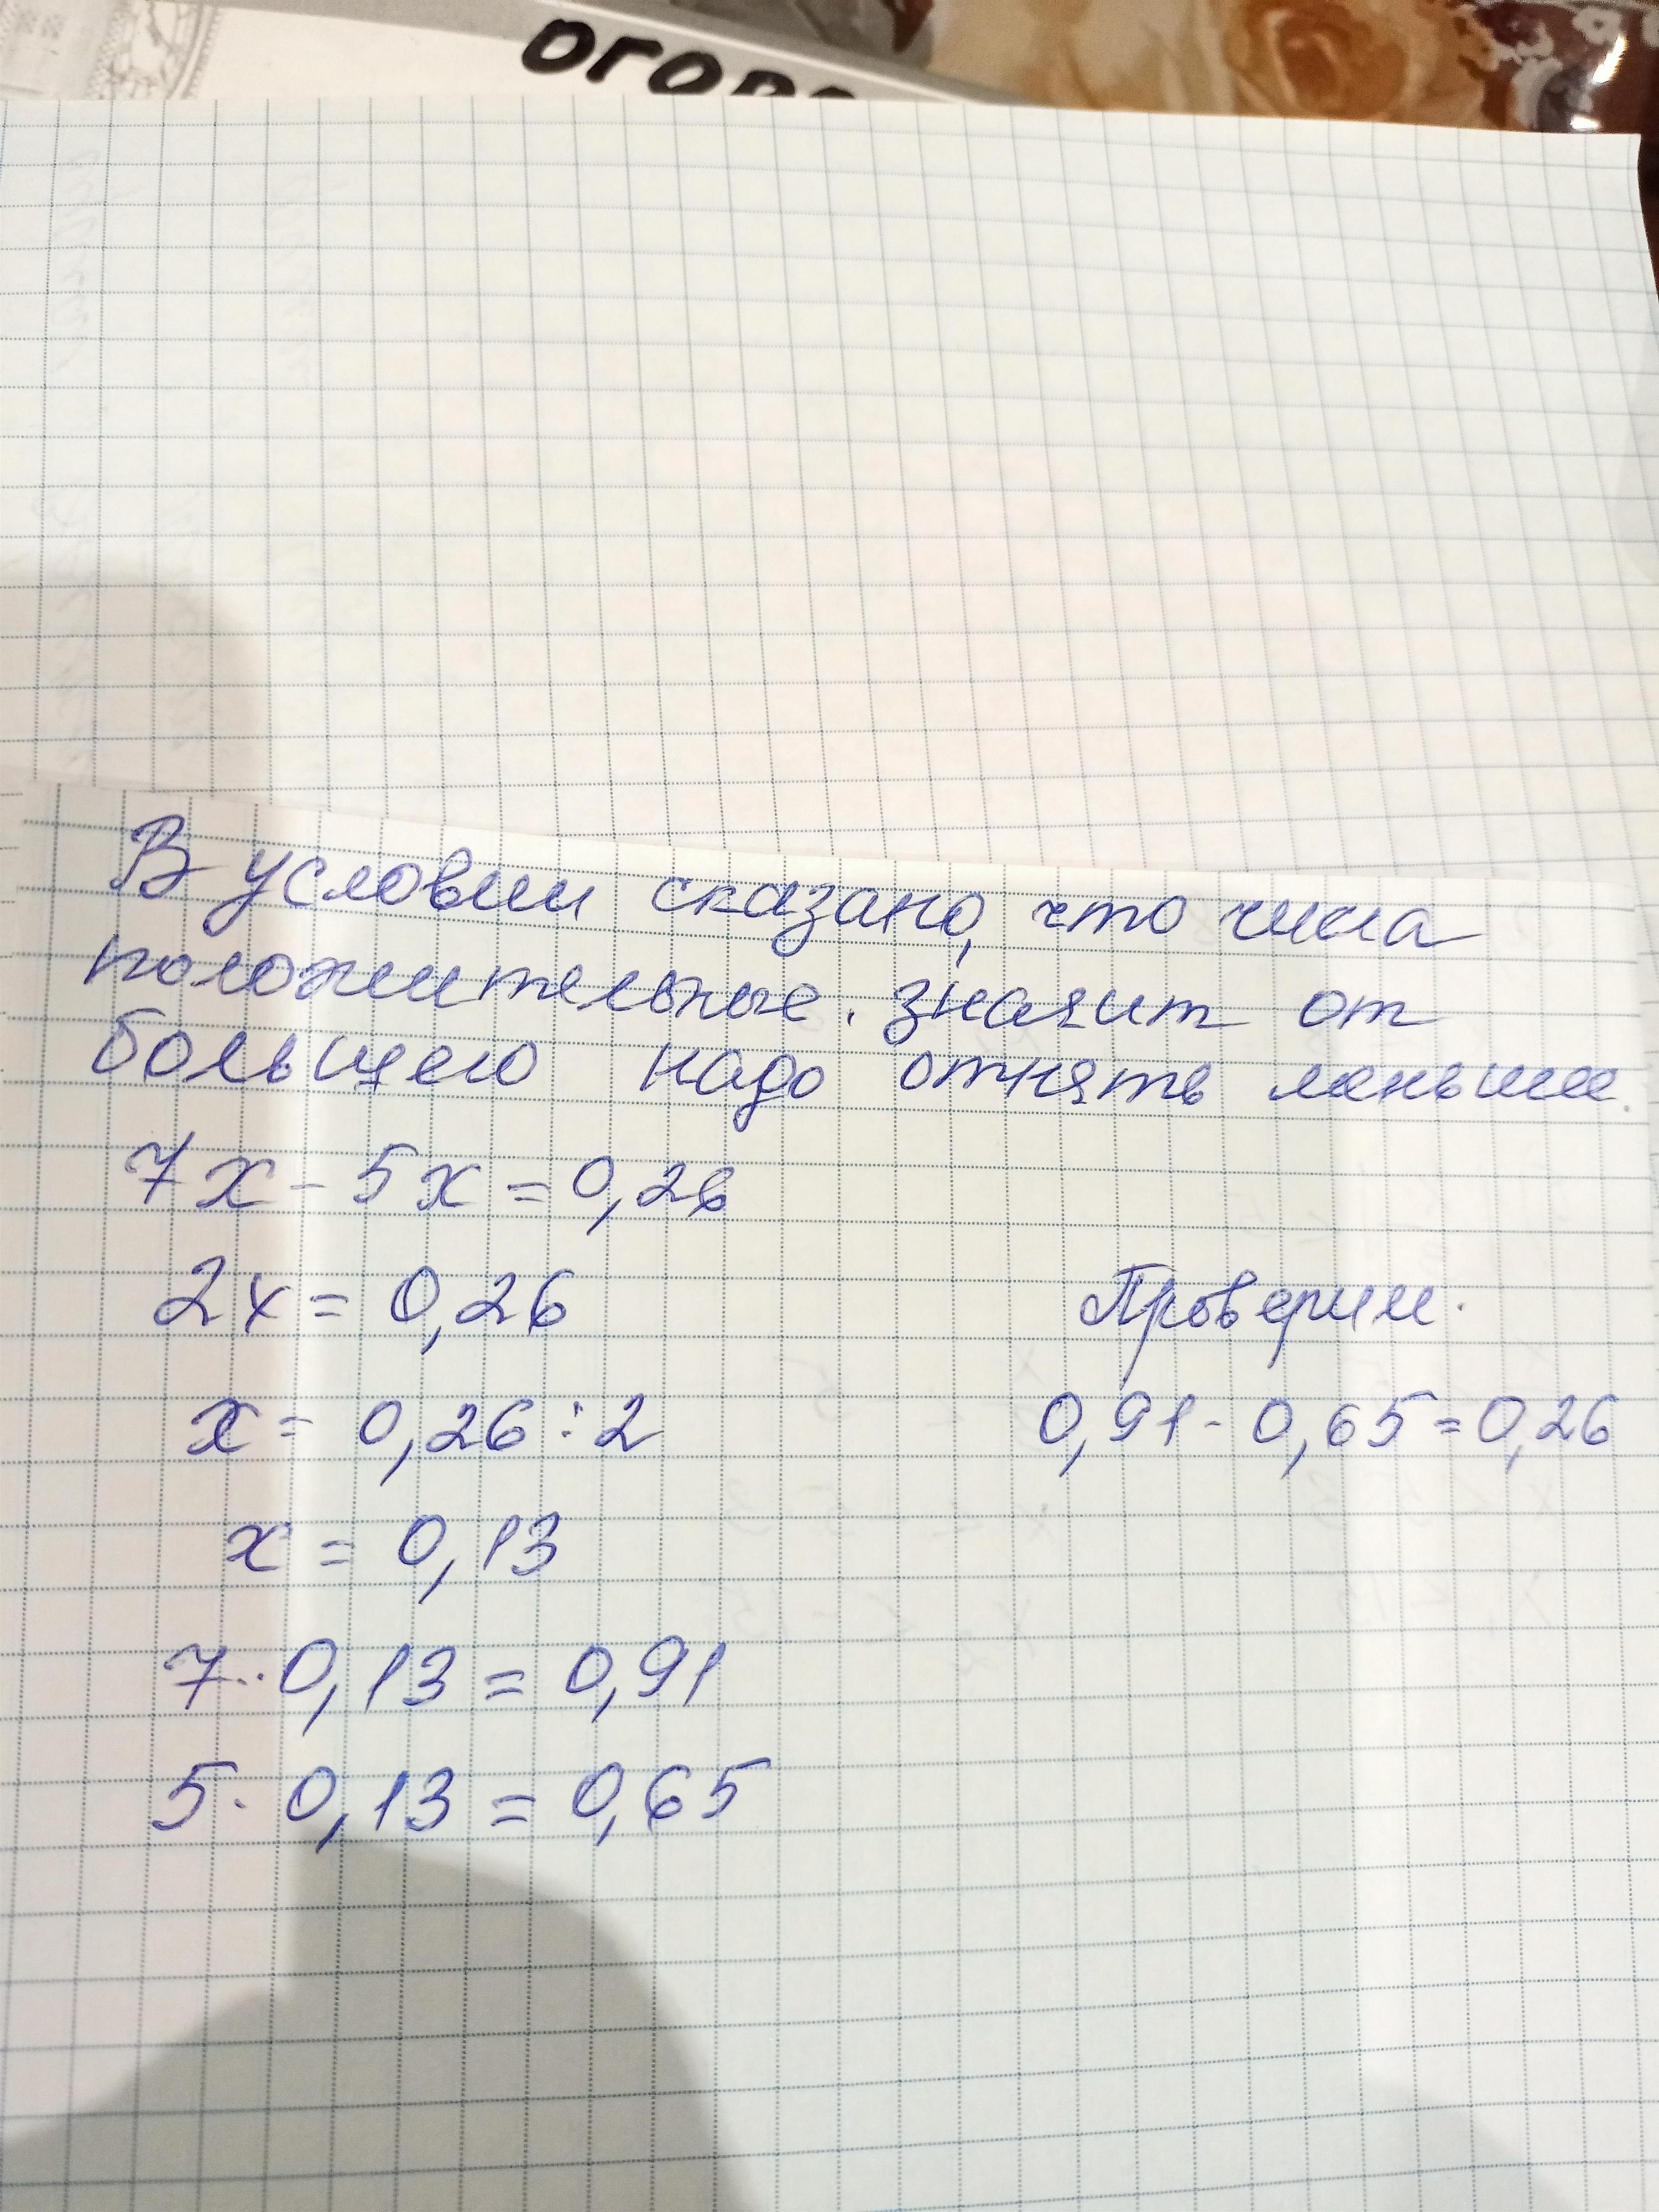 ОГОРО
В условии сказано, что числа
положительные. значит от
большего надо отнять меньшее.
7х - 5х = 0,26
2х = 0,26
Проверим.
х = 0,26 : 2
0,91 - 0,65 = 0,26
х = 0,13
7 · 0,13 = 0,91
5 · 0,13 = 0,65